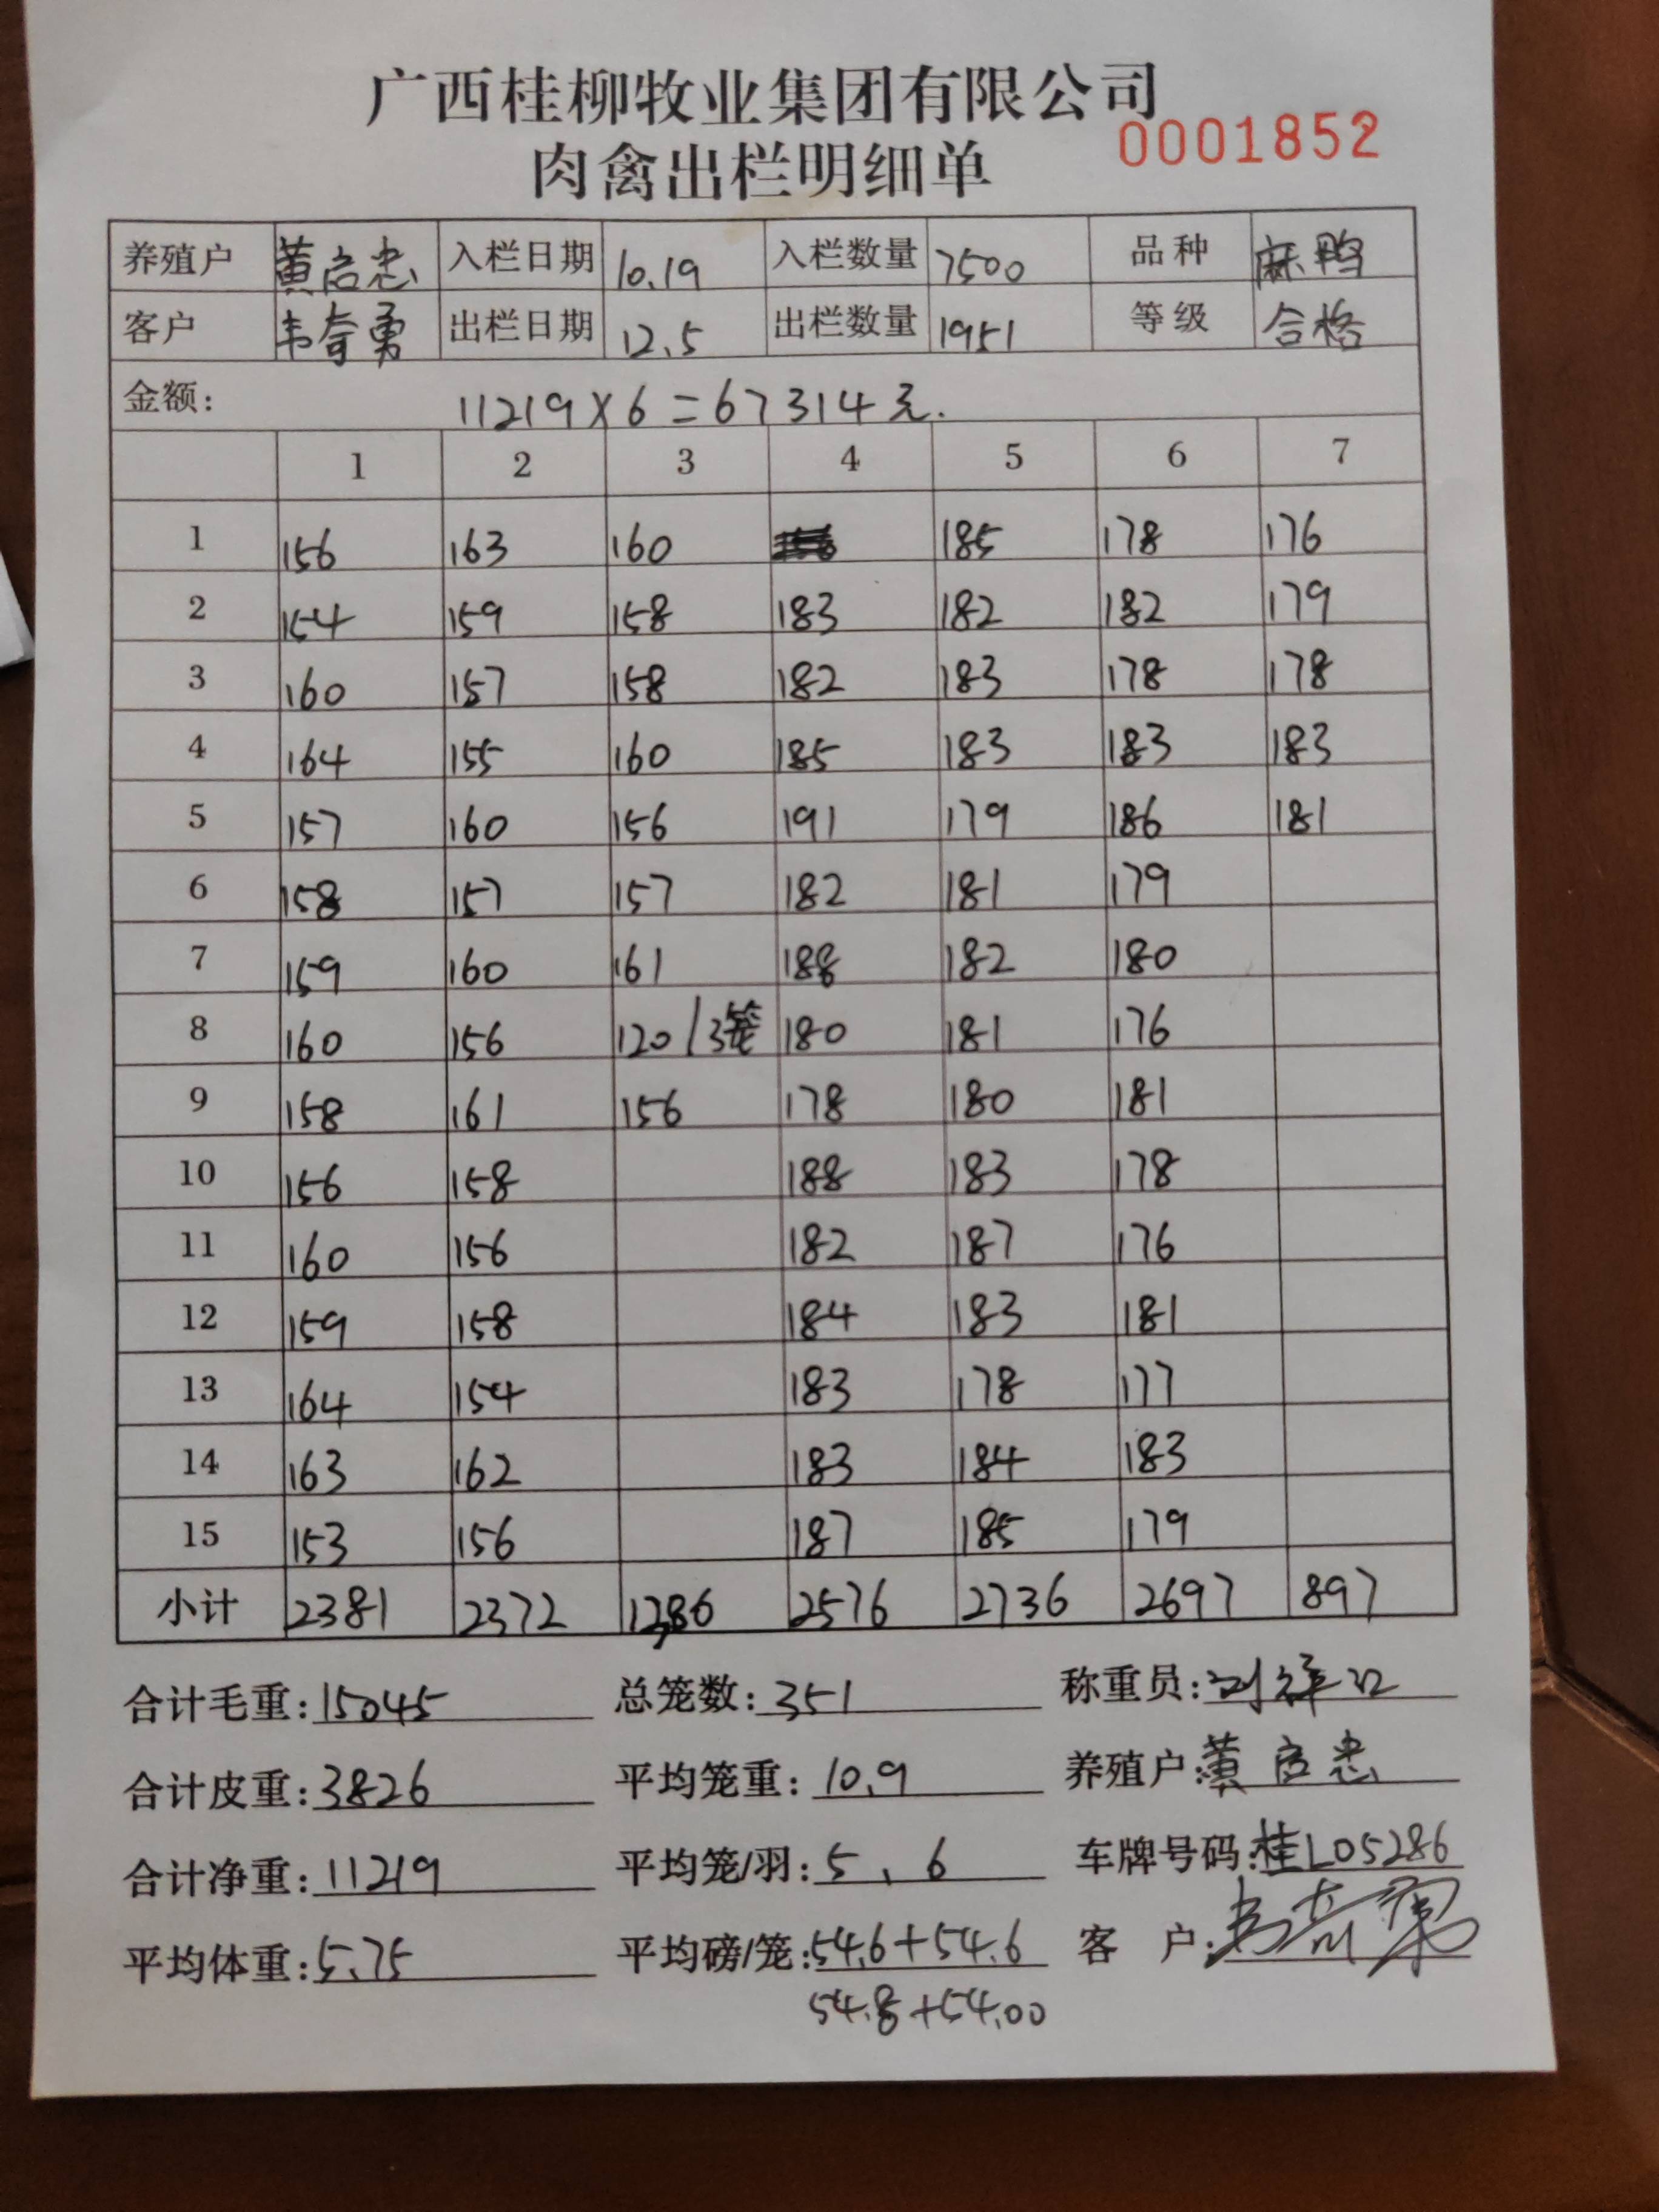 广西桂柳牧业集团有限公司
肉禽出栏明细单 0001852
养殖户 黄启忠 入栏日期 10.19 入栏数量 7500 品种 麻鸭
客户 韦奇勇 出栏日期 12.5 出栏数量 1951 等级 合格
金额: 11219×6=67314元.
1 2 3 4 5 6 7
1 156 163 160 185 178 176
2 154 159 158 183 182 182 179
3 160 157 158 182 183 178 178
4 164 155 160 185 183 183 183
5 157 160 156 191 179 186 181
6 158 157 157 182 181 179
7 159 160 161 188 182 180
8 160 156 120/3笼 180 181 176
9 158 161 156 178 180 181
10 156 158 188 183 178
11 160 156 182 187 176
12 159 158 184 183 181
13 164 154 183 178 177
14 163 162 183 184 183
15 153 156 187 185 179
小计 2381 2372 1386 2576 2736 2697 897
合计毛重:15045 总笼数:351 称重员:
合计皮重:3826 平均笼重:10.9 养殖户:黄启忠
合计净重:11219 平均笼/羽:5.6 车牌号码:桂L05286
平均体重:5.75 平均磅/笼:54.6+54.6 客 户:韦奇勇
54.8+54.00